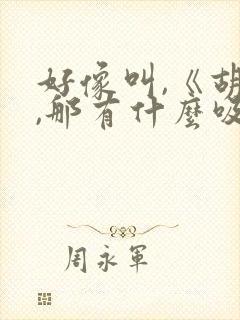 好像叫,《胡
,那有什麼吸
周永軍